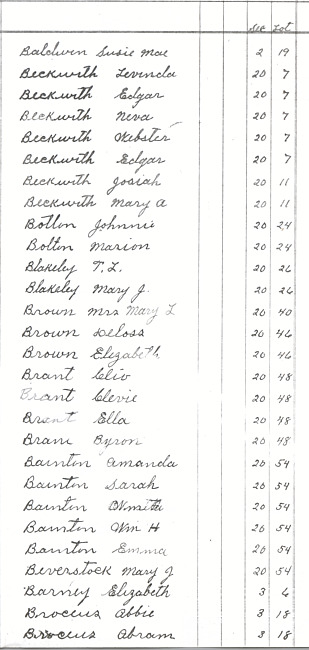 Sec Lot
Baldwin Susie Mae 2 19
Beckwith Levinda 20 7
Beckwith Edgar 20 7
Beckwith Neva 20 7
Beckwith Webster 20 7
Beckwith Edgar 20 7
Beckwith Josiah 20 11
Beckwith Mary A 20 11
Bolton Johnnie 20 24
Bolton Marion 20 24
Blakeley T. L. 20 26
Blakeley Mary J. 20 26
Brown Mrs Mary L 20 40
Brown Deloss 20 46
Brown Elizabeth 20 46
Brant Clio 20 48
Brant Clevie 20 48
Brent Ella 20 48
Byron 20 48
Bainton Amanda 20 54
Bainton Sarah 20 54
Bainton 20 54
Bainton Wm H 20 54
Bainton Emma 20 54
Beverstock Mary J 20 54
Barney Elizabeth 3 6
Broceus Abbie 3 18
Broceus Abram 3 18